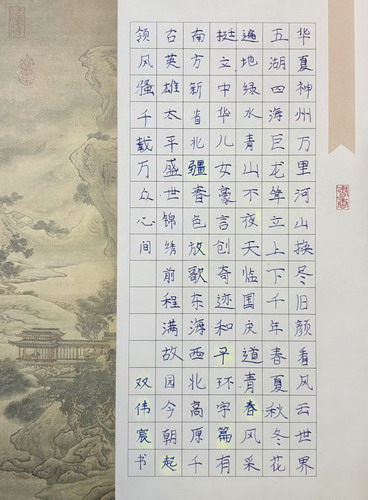 华夏神州万里河山换尽旧颜看风云世界
五湖四海巨龙耸立上下千年春夏秋冬花
遍地绿水青山不夜天临国庆道青春风采
挺立中华儿女豪言创奇迹和平环宇篇有
南方新省北疆春色放歌东海西北高原千
召英雄太平盛世锦绣前程满故园今朝起
领风骚千载万众心间
双伟宸书